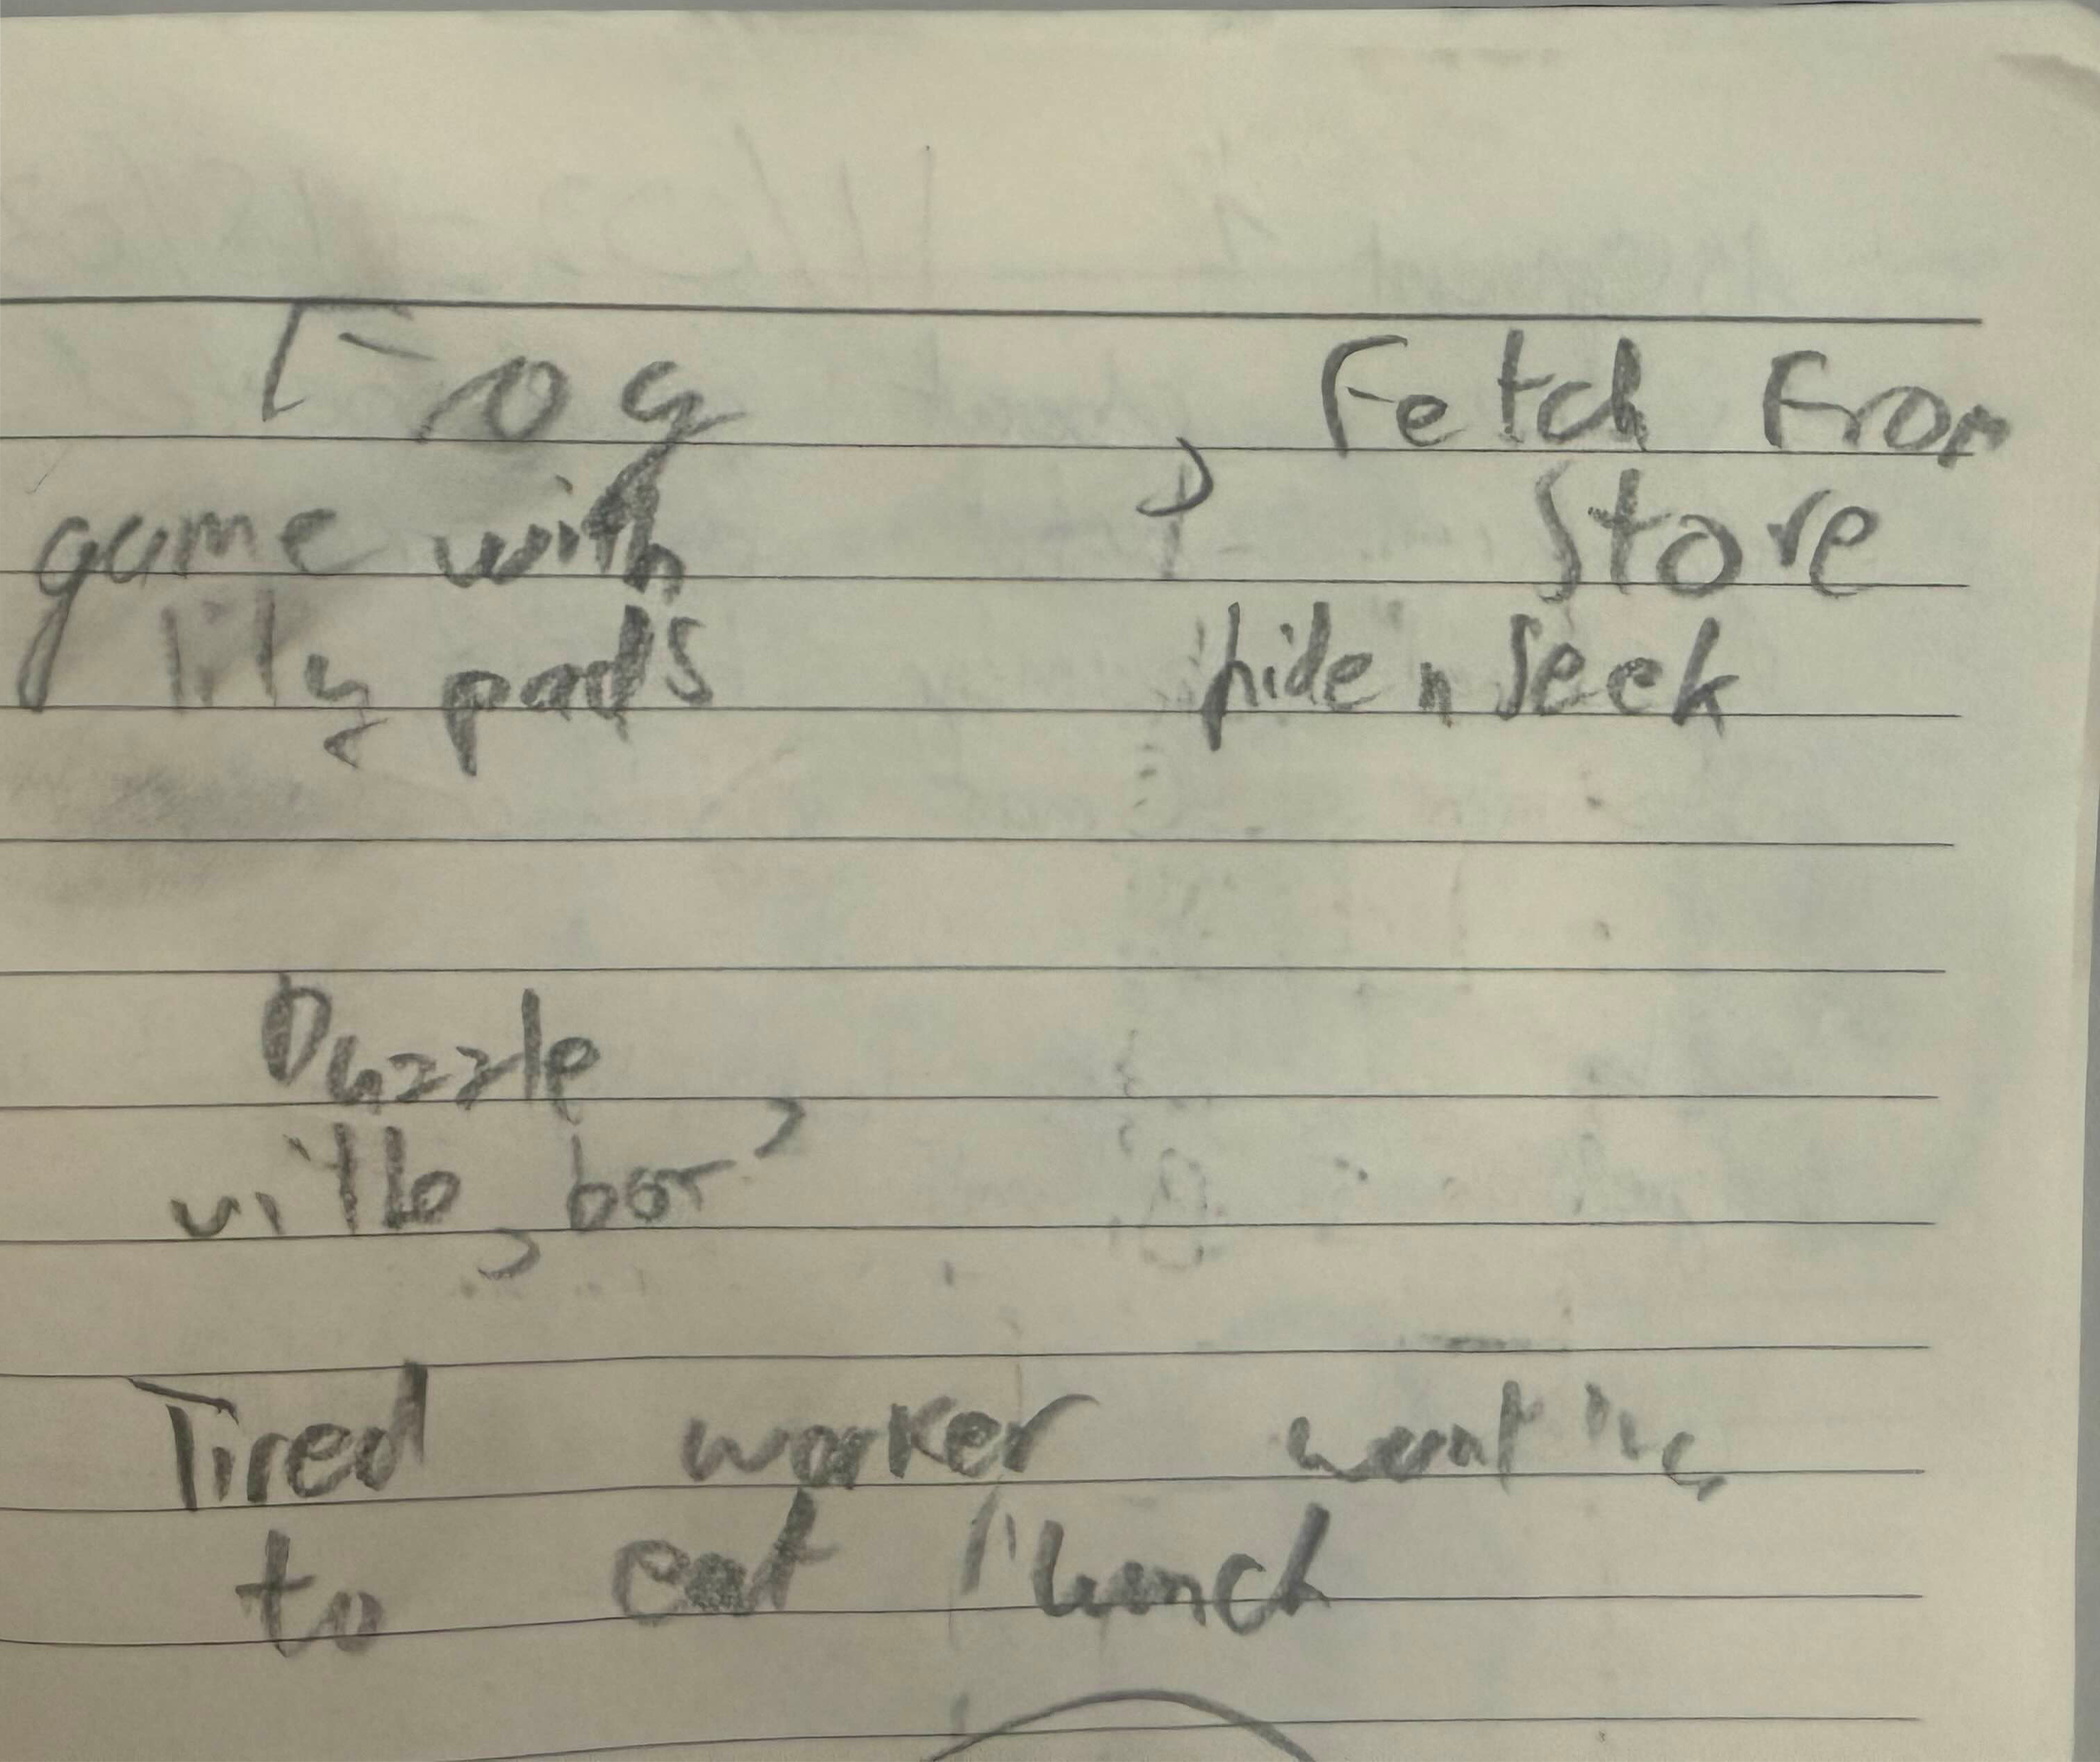 Frog
game with
lily pads
Fetch From
Store
hide n seek
Puzzle
Tired worker wanting
to eat lunch